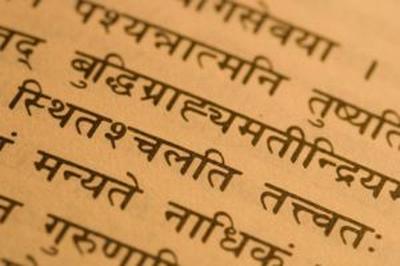 योगसेवया ।
पश्यन्नात्मनि तुष्यति
बुद्धिग्राह्यमतीन्द्रियम
स्थितश्चलति तत्त्वतः
मन्यते नाधिकं
गुरुणापि